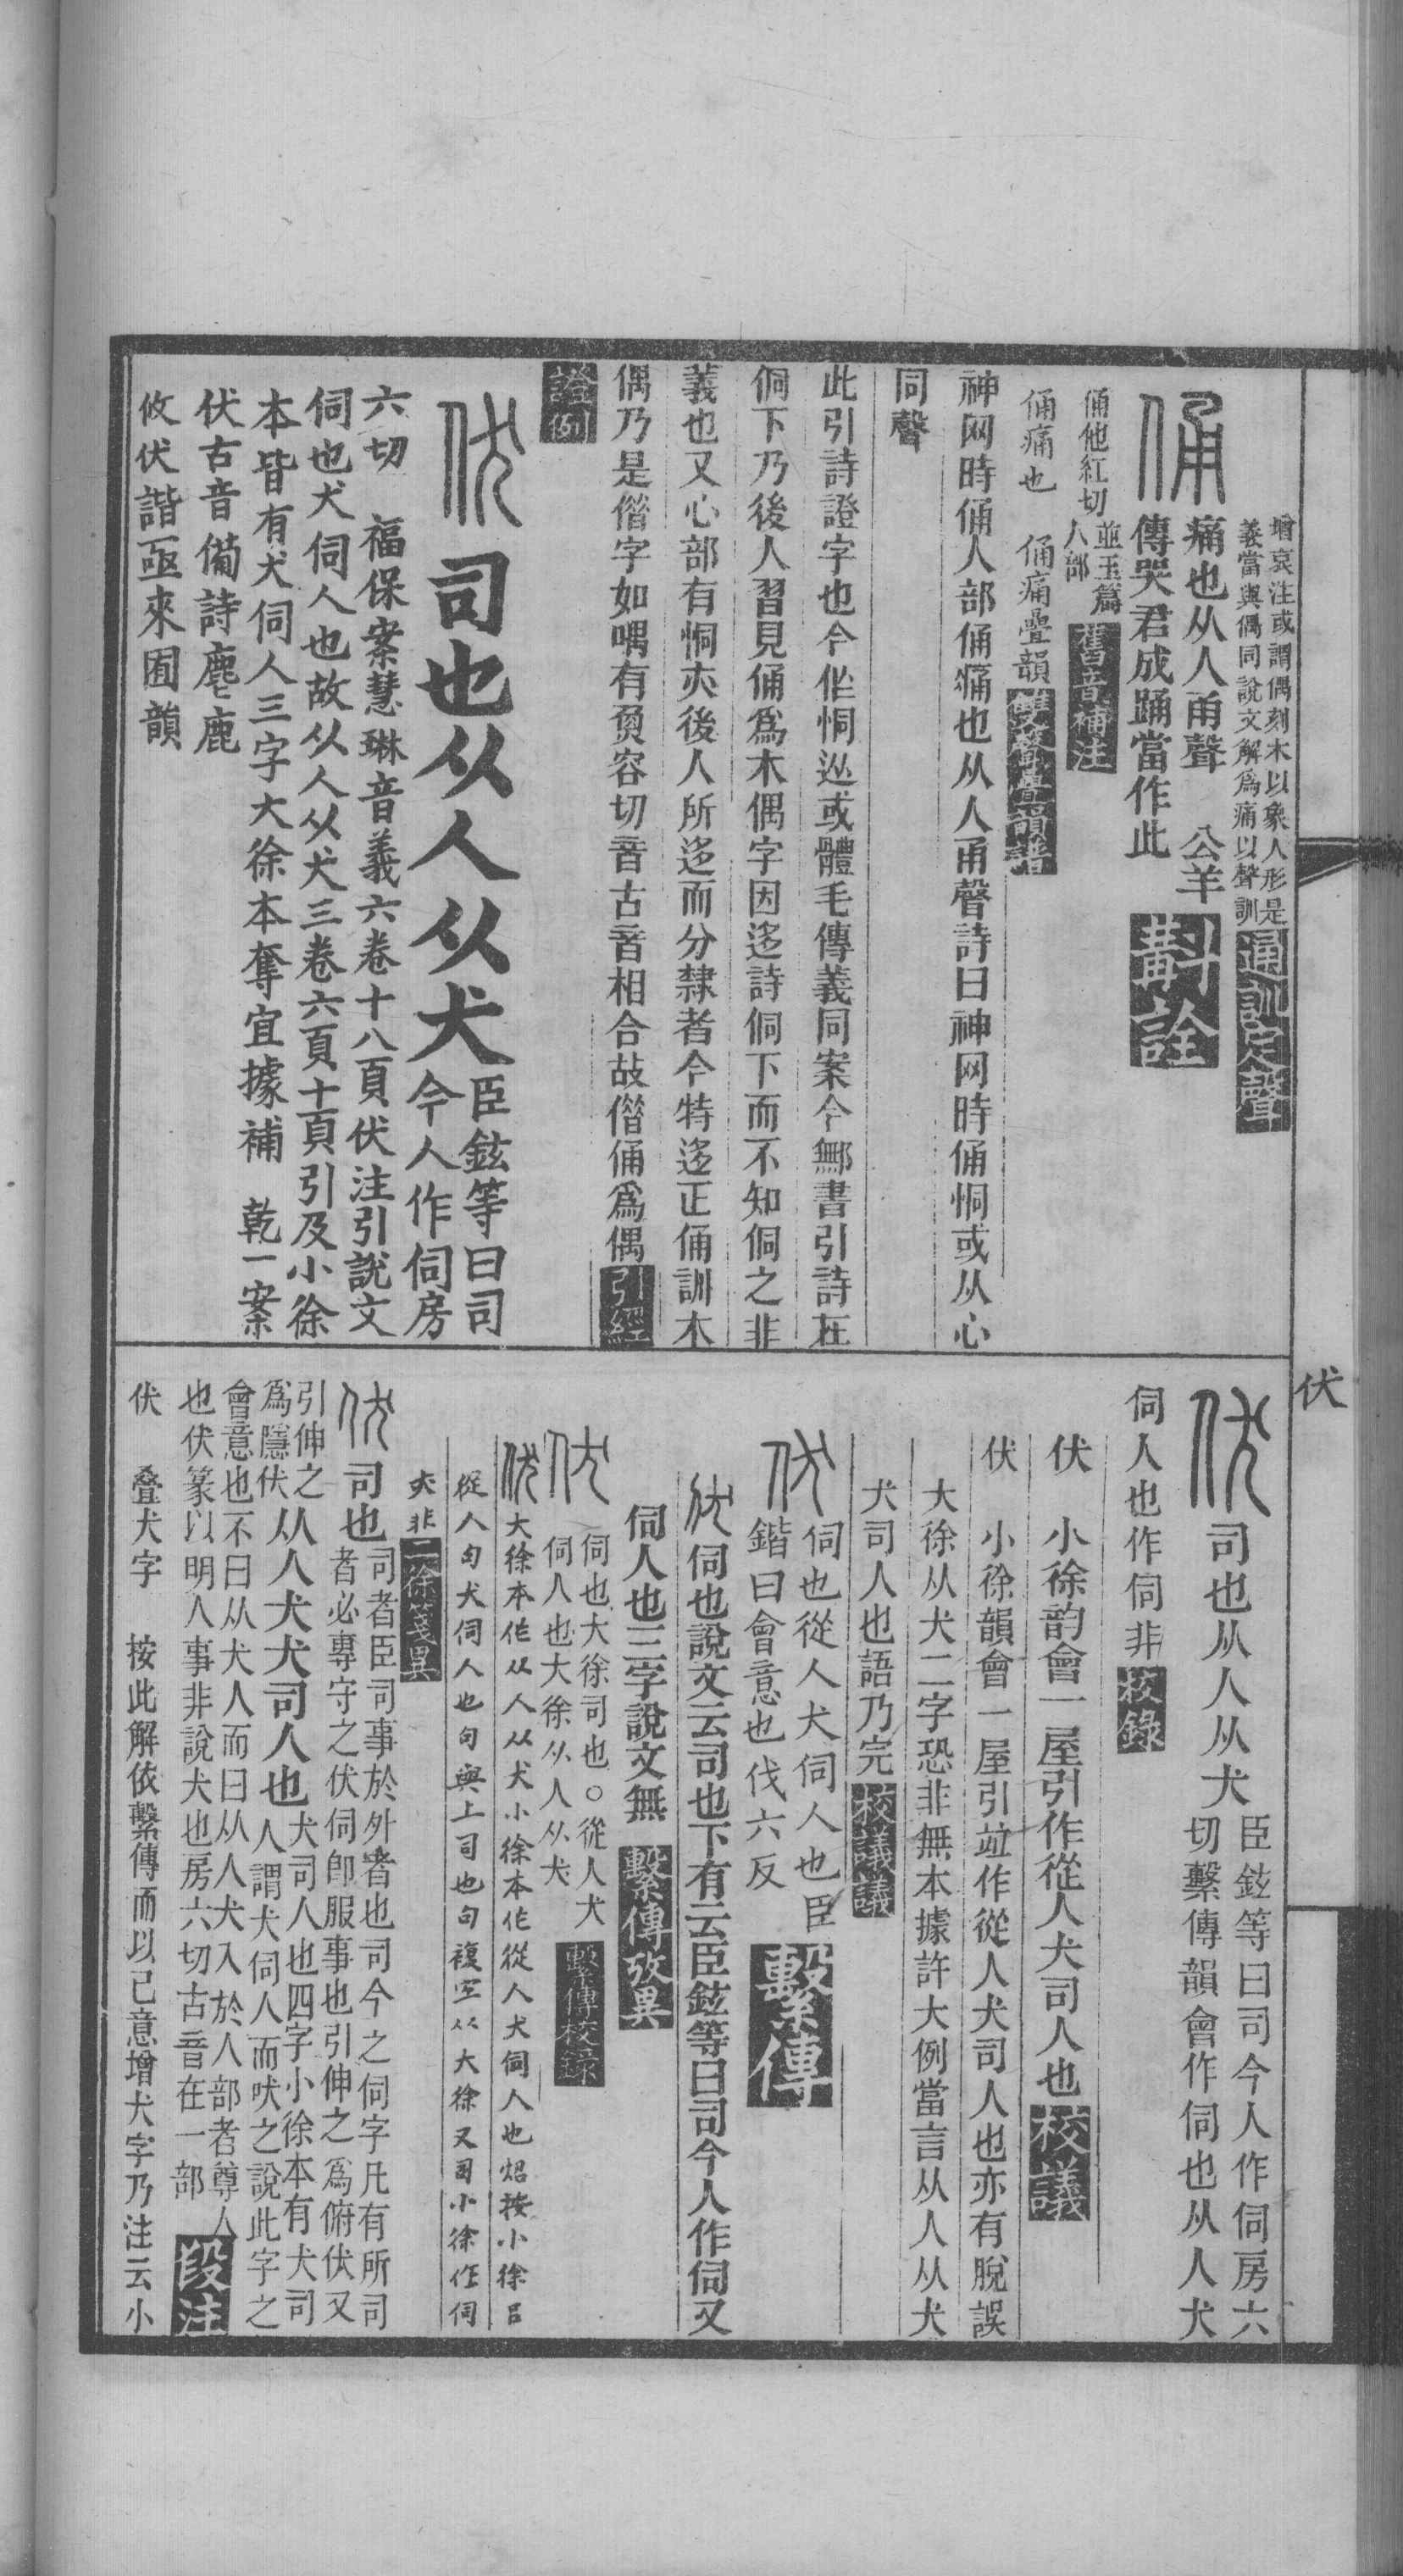 增哀注或謂偶刻木以象人形是
義當與偶同說文解爲痛以聲訓
通訓定聲
痛也从人甬聲 公羊
傳哭君成踊當作此
斠詮
俑他紅切
並玉篇
人部
舊音補注
俑痛也 俑痛疊韻
雙聲疊韻譜
神网時俑人部俑痛也从人甬聲詩曰神网時俑恫或从心
同聲
此引詩證字也今作恫或體毛傳義同案今鄦書引詩在
侗下乃後人習見俑爲木偶字因迻詩侗下而不知侗之非
義也又心部有恫亦後人所迻而分隸者今特迻正俑訓木
偶乃是偕字如喁有奠容切音古音相合故偕俑爲偶
引經
證例
司也从人从犬
臣鉉等曰司
今人作伺房
六切 福保案慧琳音義六卷十八頁伏注引說文
伺也犬伺人也故从人从犬三卷六頁十頁引及小徐
本皆有犬伺人三字大徐本奪宜據補 乾一案
伏古音備詩麀鹿
攸伏諧亟來囿韻
伏
司也从人从犬
臣鉉等曰司今人作伺房六
切繫傳韻會作伺也从人犬
伺人也作伺非
校錄
伏 小徐韵會一屋引作從人犬司人也
校議
伏 小徐韻會一屋引竝作從人犬司人也亦有脫誤
大徐从犬二字恐非無本據許大例當言从人从犬
犬司人也語乃完
校議議
伺也從人犬伺人也臣
鍇曰會意也伐六反
繫傳
伺也說文云司也下有云臣鉉等曰司今人作伺又
伺人也三字說文無
繫傳攷異
伺也大徐司也○從人犬
伺人也大徐从人从犬
繫傳校錄
大徐本作从人从犬小徐本作從人犬伺人也炤按小徐吕
從人句犬伺人也句與上司也句複空从大徐又司小徐作伺
亦非
二徐箋異
司也
司者臣司事於外者也司今之伺字凡有所司
者必專守之伏伺卽服事也引伸之爲俯伏又
引伸之
爲隱伏
从人犬犬司人也
犬司人也四字小徐本有犬司
人謂犬伺人而吠之說此字之
會意也不曰从犬人而曰从人犬入於人部者尊人
也伏篆以明人事非說犬也房六切古音在一部
段注
伏 叠犬字 按此解依繫傳而以已意增犬字乃注云小